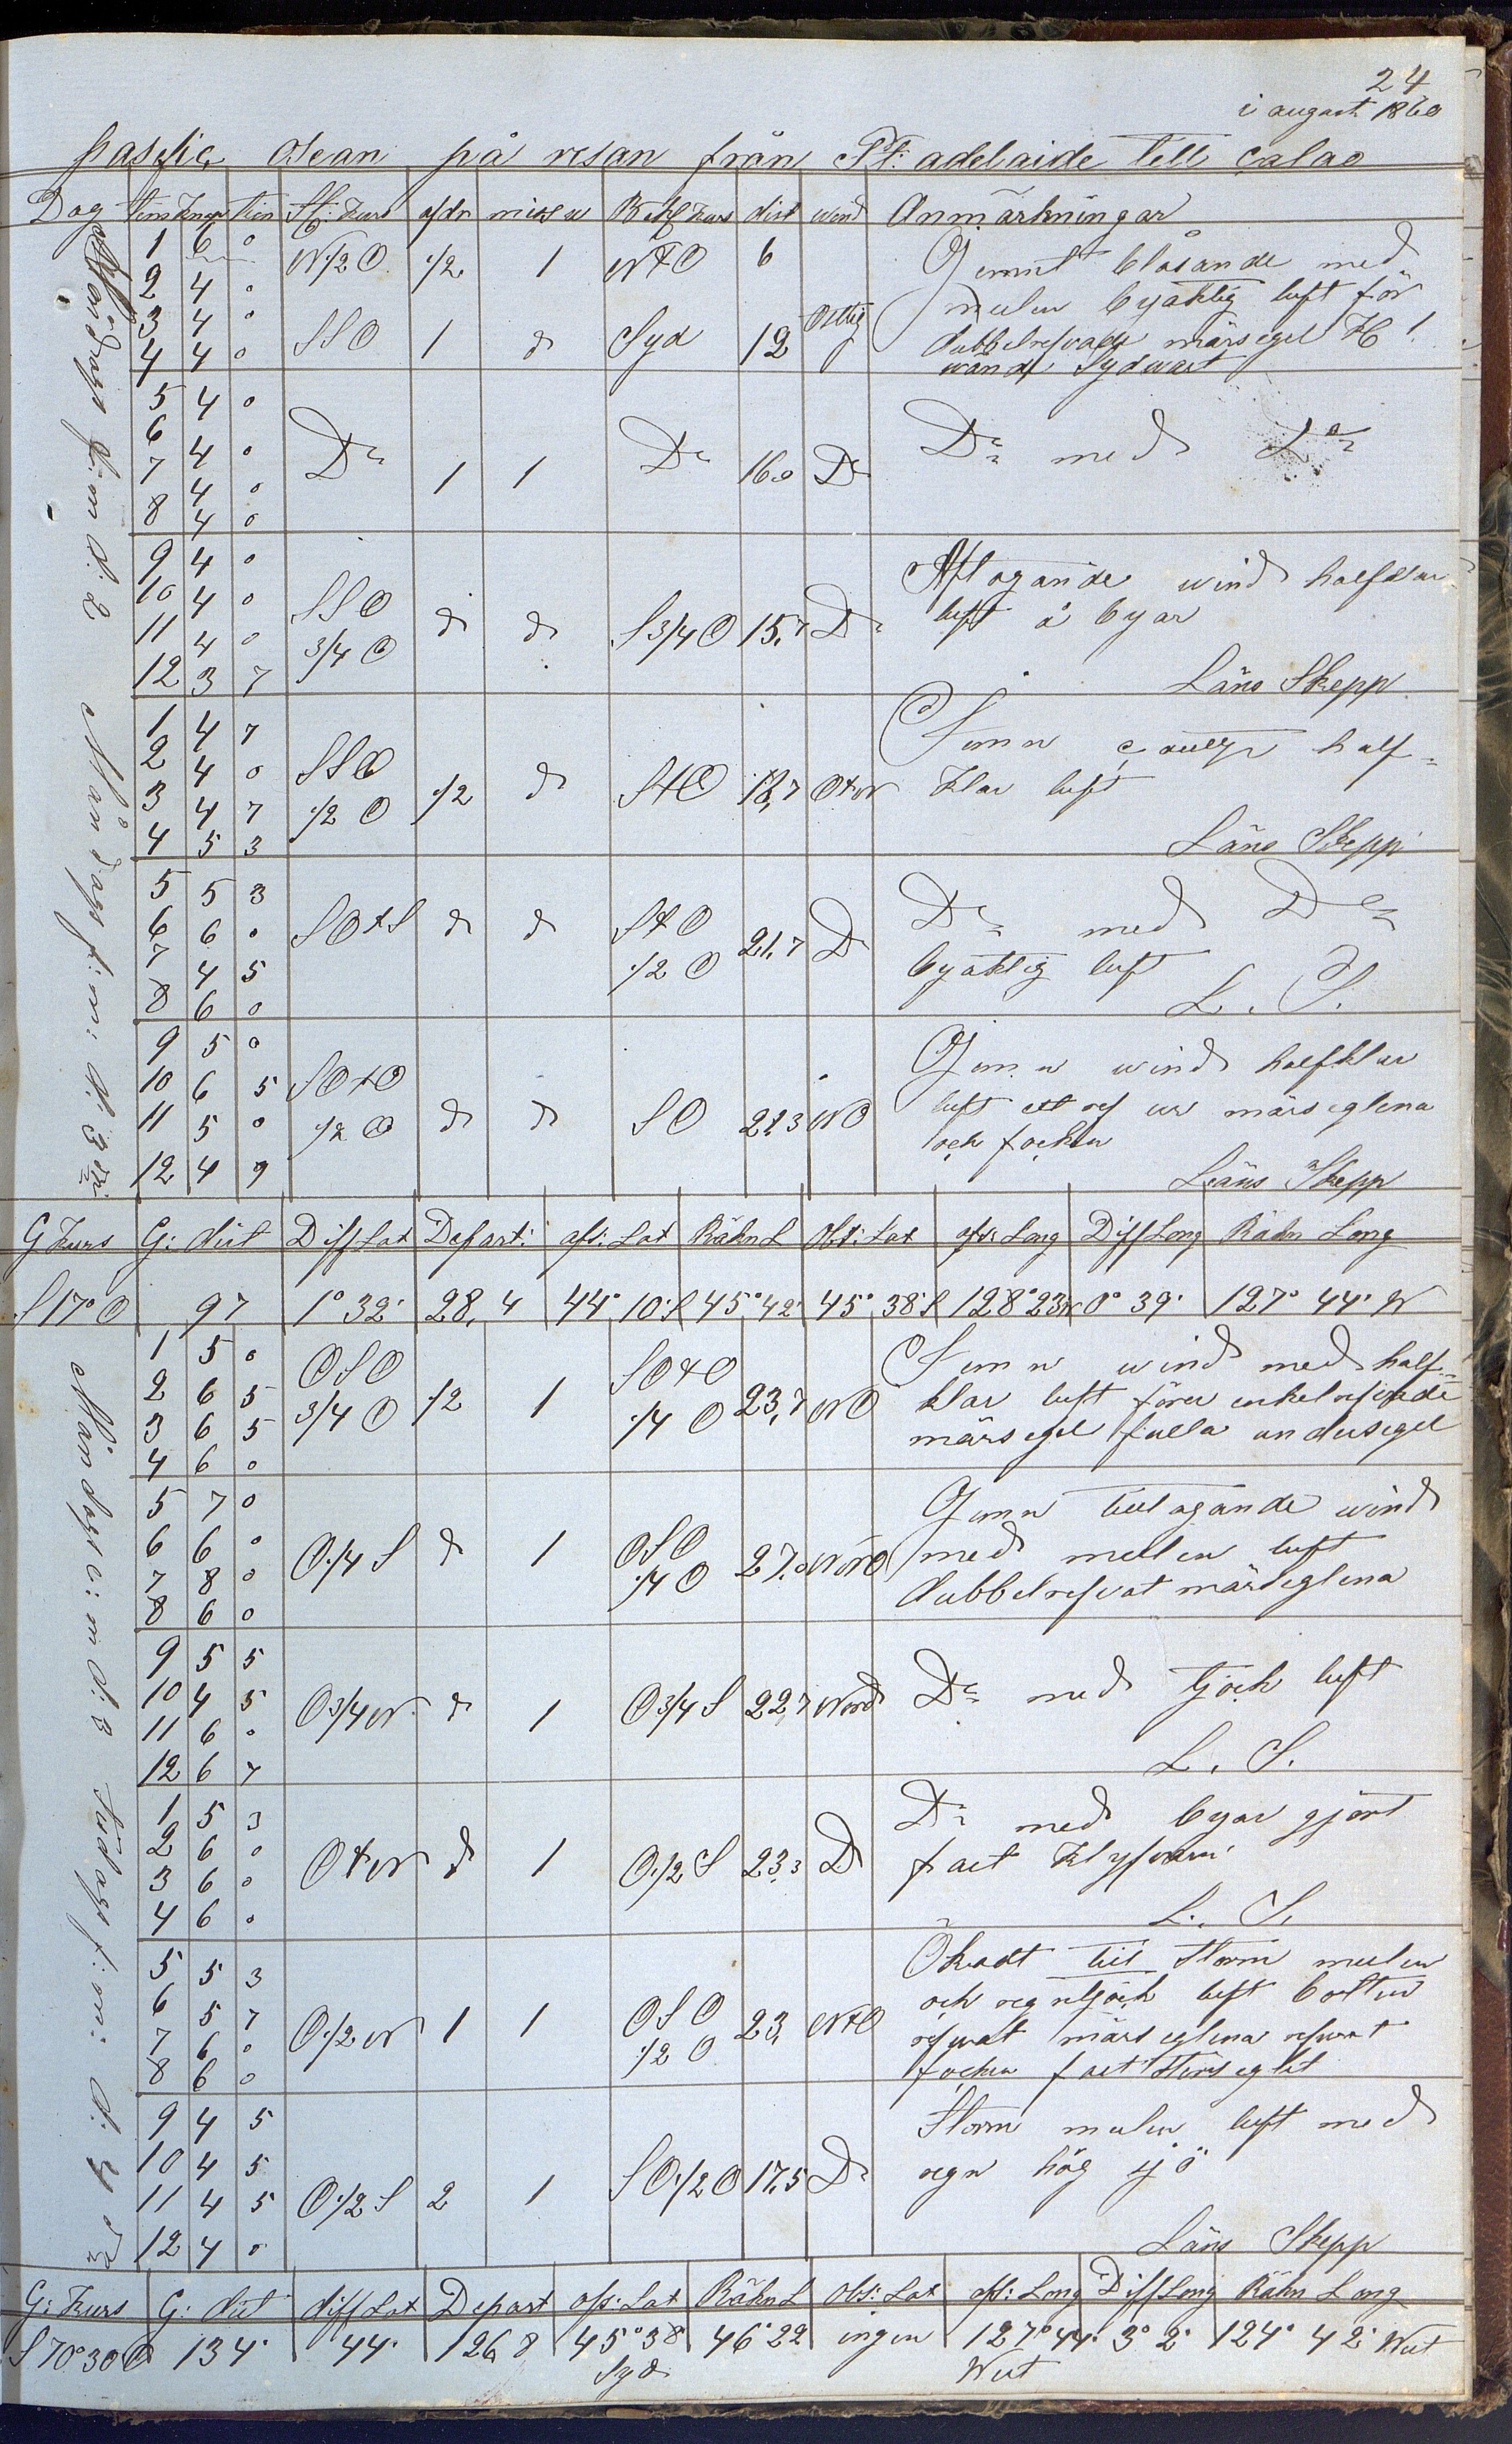 24
i august 1860
pasific Osean på resan från Pt: adelaide till Calao
Dag tim knop tien St: Kurs afdr missw Beh Kurs dist wind Anmärkningar
1 6 0 N½O ½ 1 NtO 6 Jemnt blåsande med
2 4 0 mulen byaktig luft för
3 4 0 SSO 1 d Syd 12 Ostlig dubbelrefvade märsegel Kl 1
4 4 0 wände Sydwart
5 4 0
6 4 0 Do 1 1 Do 16.0 Do Do med Do
7 4 0
8 4 0
9 4 0 Aftagande wind halfklar
10 4 0 SSO d d S¾O 15,7 Do luft å byar
11 4 0 ¾ O
12 3 7 Läns Skepp
1 4 7 Jemn half
2 4 0 SSO ½ d StO 18,7 OtN klar luft
3 4 7 ½ O
4 5 3 Läns Skepp
5 5 3 Do med Do
6 6 0 SOtS d d StO 21,7 D byaktig luft
7 4 5 ½ O
8 6 0 L. S.
9 5 0 Jemn wind halfklar
10 6 5 SOtO luft ett ref ur märseglena
11 5 0 ½ O d d SO 21,3 NO och focken
12 4 9 Läns Skepp
Måndags f:m: d. 3
G Kurs G: dist Diff Lat Depart: afs: Lat Räkn L Obs: Lat afs: Long Diff Long Räkn Long
S 17° O 97 1° 32' 28,4 44° 10' S 45° 42' 45° 38' S 128° 23 W 0° 39' 127° 44' W
1 5 0 OSO SOtO Jemn wind med half
2 6 5 ¾ O ½ 1 ¼ O 23,7 NO klar luft förer enkelrefvade
3 6 5 märsegel fulla undersegel
4 6 0
5 7 0 Jemn tilltagande wind
6 6 0 O¼S d 1 OSO 27,0 NNO med mullen luft
7 8 0 ¼ O dubbelrefvat märseglena
8 6 0
9 5 5
10 4 5 O¾N d 1 O¾S 22,7 Nord Do med tjock luft
11 6 0
12 6 7 L. S.
1 5 3 Do med byar gjort
2 6 0 OtN d 1 O½S 23,3 D fast Klyfvarn
3 6 0
4 6 0 L. S.
5 5 3 Ökadt till Storm mulen
6 5 7 O½N 1 1 OSO 23, NtO och regntjock luft botten
7 6 0 ½ O refwat märseglena refwat
8 6 0 focken fast Storseglet
9 4 5 Storm mulen luft med
10 4 5 regn hög sjö
11 4 5 O½S 2 1 SO½O 17,5 Do
12 4 0 Läns Skepp
Måndags e:m d: 3 Tisdags f:m: d: 4
G: Kurs G: dist diff Lat Depart afs: Lat Räkn L Obs: Lat afs: Long Diff Long Räkn Long
S 70° 30 O 134' 44' 126,8 45° 38' 46° 22 ingen 127° 44' 3° 2' 124° 42' West
Syd West